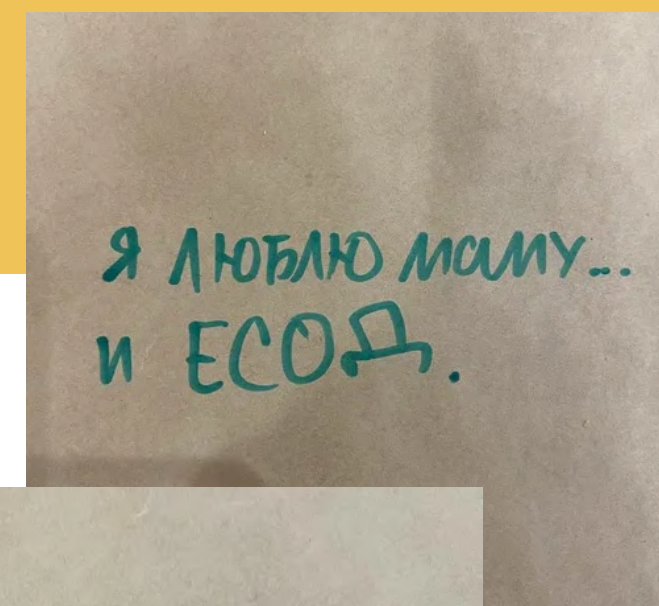 Я ЛЮБЛЮ МАМУ...
И ЕСОД.